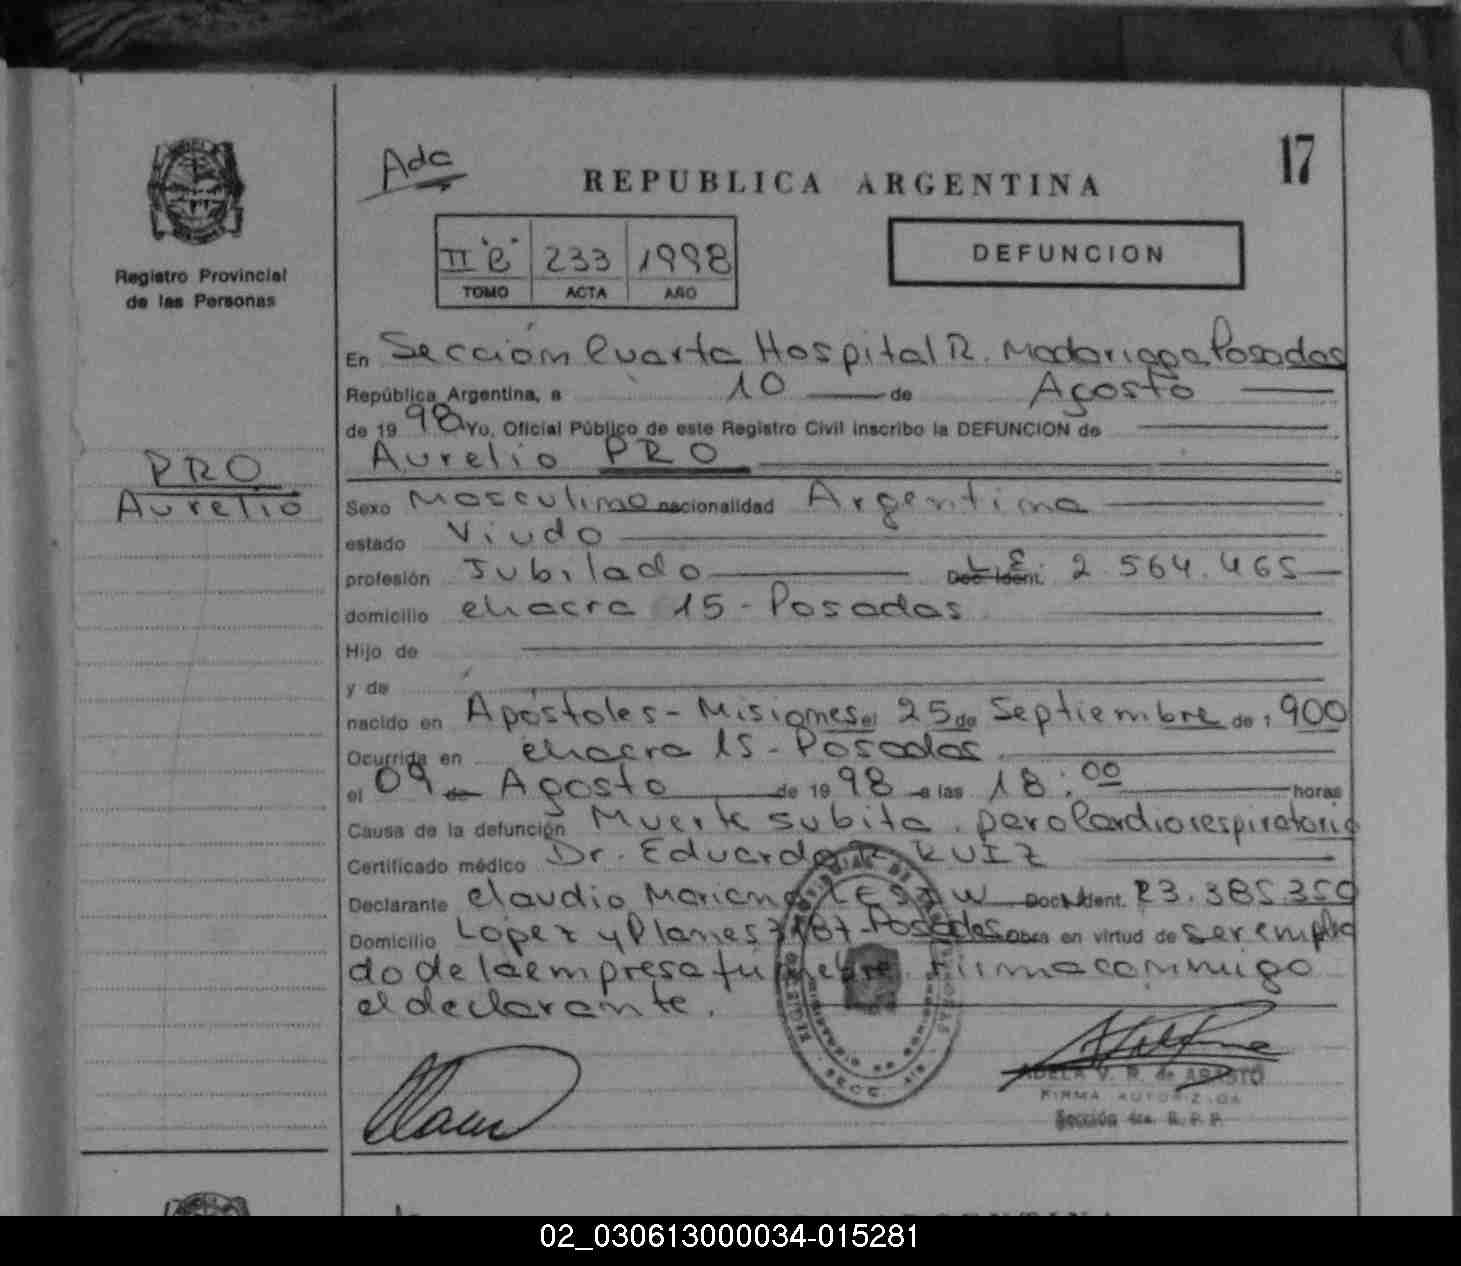 Ada
17
REPUBLICA ARGENTINA
II "B" 233 1998
TOMO ACTA AÑO
DEFUNCION
Registro Provincial
de las Personas
PRO
Aurelio
En Sección Cuarta Hospital R. Madariaga Posadas
República Argentina, a 10 de Agosto
de 19 98 Yo, Oficial Público de este Registro Civil inscribo la DEFUNCION de
Aurelio PRO
Sexo Masculino nacionalidad Argentina
estado Viudo
profesión Jubilado Doc. Ident. L.E. 2 564.465
domicilio chacra 15 - Posadas
Hijo de
y de
nacido en Apóstoles - Misiones el 25 de Septiembre de 1 900
Ocurrida en chacra 15 - Posadas
el 09 de Agosto de 19 98 a las 18:00 horas
Causa de la defunción Muerte subita. paro Cardiorespiratorio
Certificado médico Dr. Eduardo RUIZ
Declarante Claudio Mariano Doc. Ident. 23.385.350
Domicilio Lopez y Planes - Posadas obra en virtud de ser emplea
do de la empresa funebre. Firma conmigo
el declarante.
ADELA V. R. de
FIRMA AUTORIZADA
Sección 4ta. R. P. P.
02_030613000034-015281